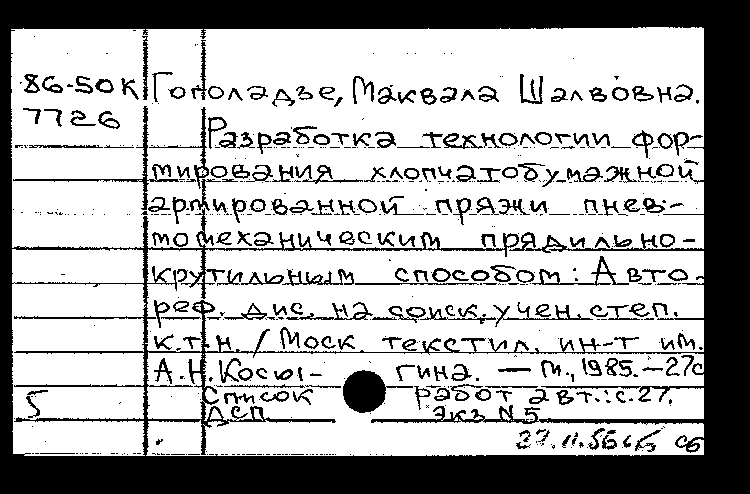 86-50К Гополадзе, Маквала Шалвовна.
7726
Разработка технологии фор-
мирования хлопчатобумажной
армированной пряжи пнев-
момеханическим прядильно-
крутильным способом: Авто-
реф. дис. на соиск. учен. степ.
к.т.н. / Моск. текстил. ин-т им.
А.Н. Косы- гина. — М., 1985. — 27с
5 Список работ авт.: с.27.
ДСП. Экз N 5.